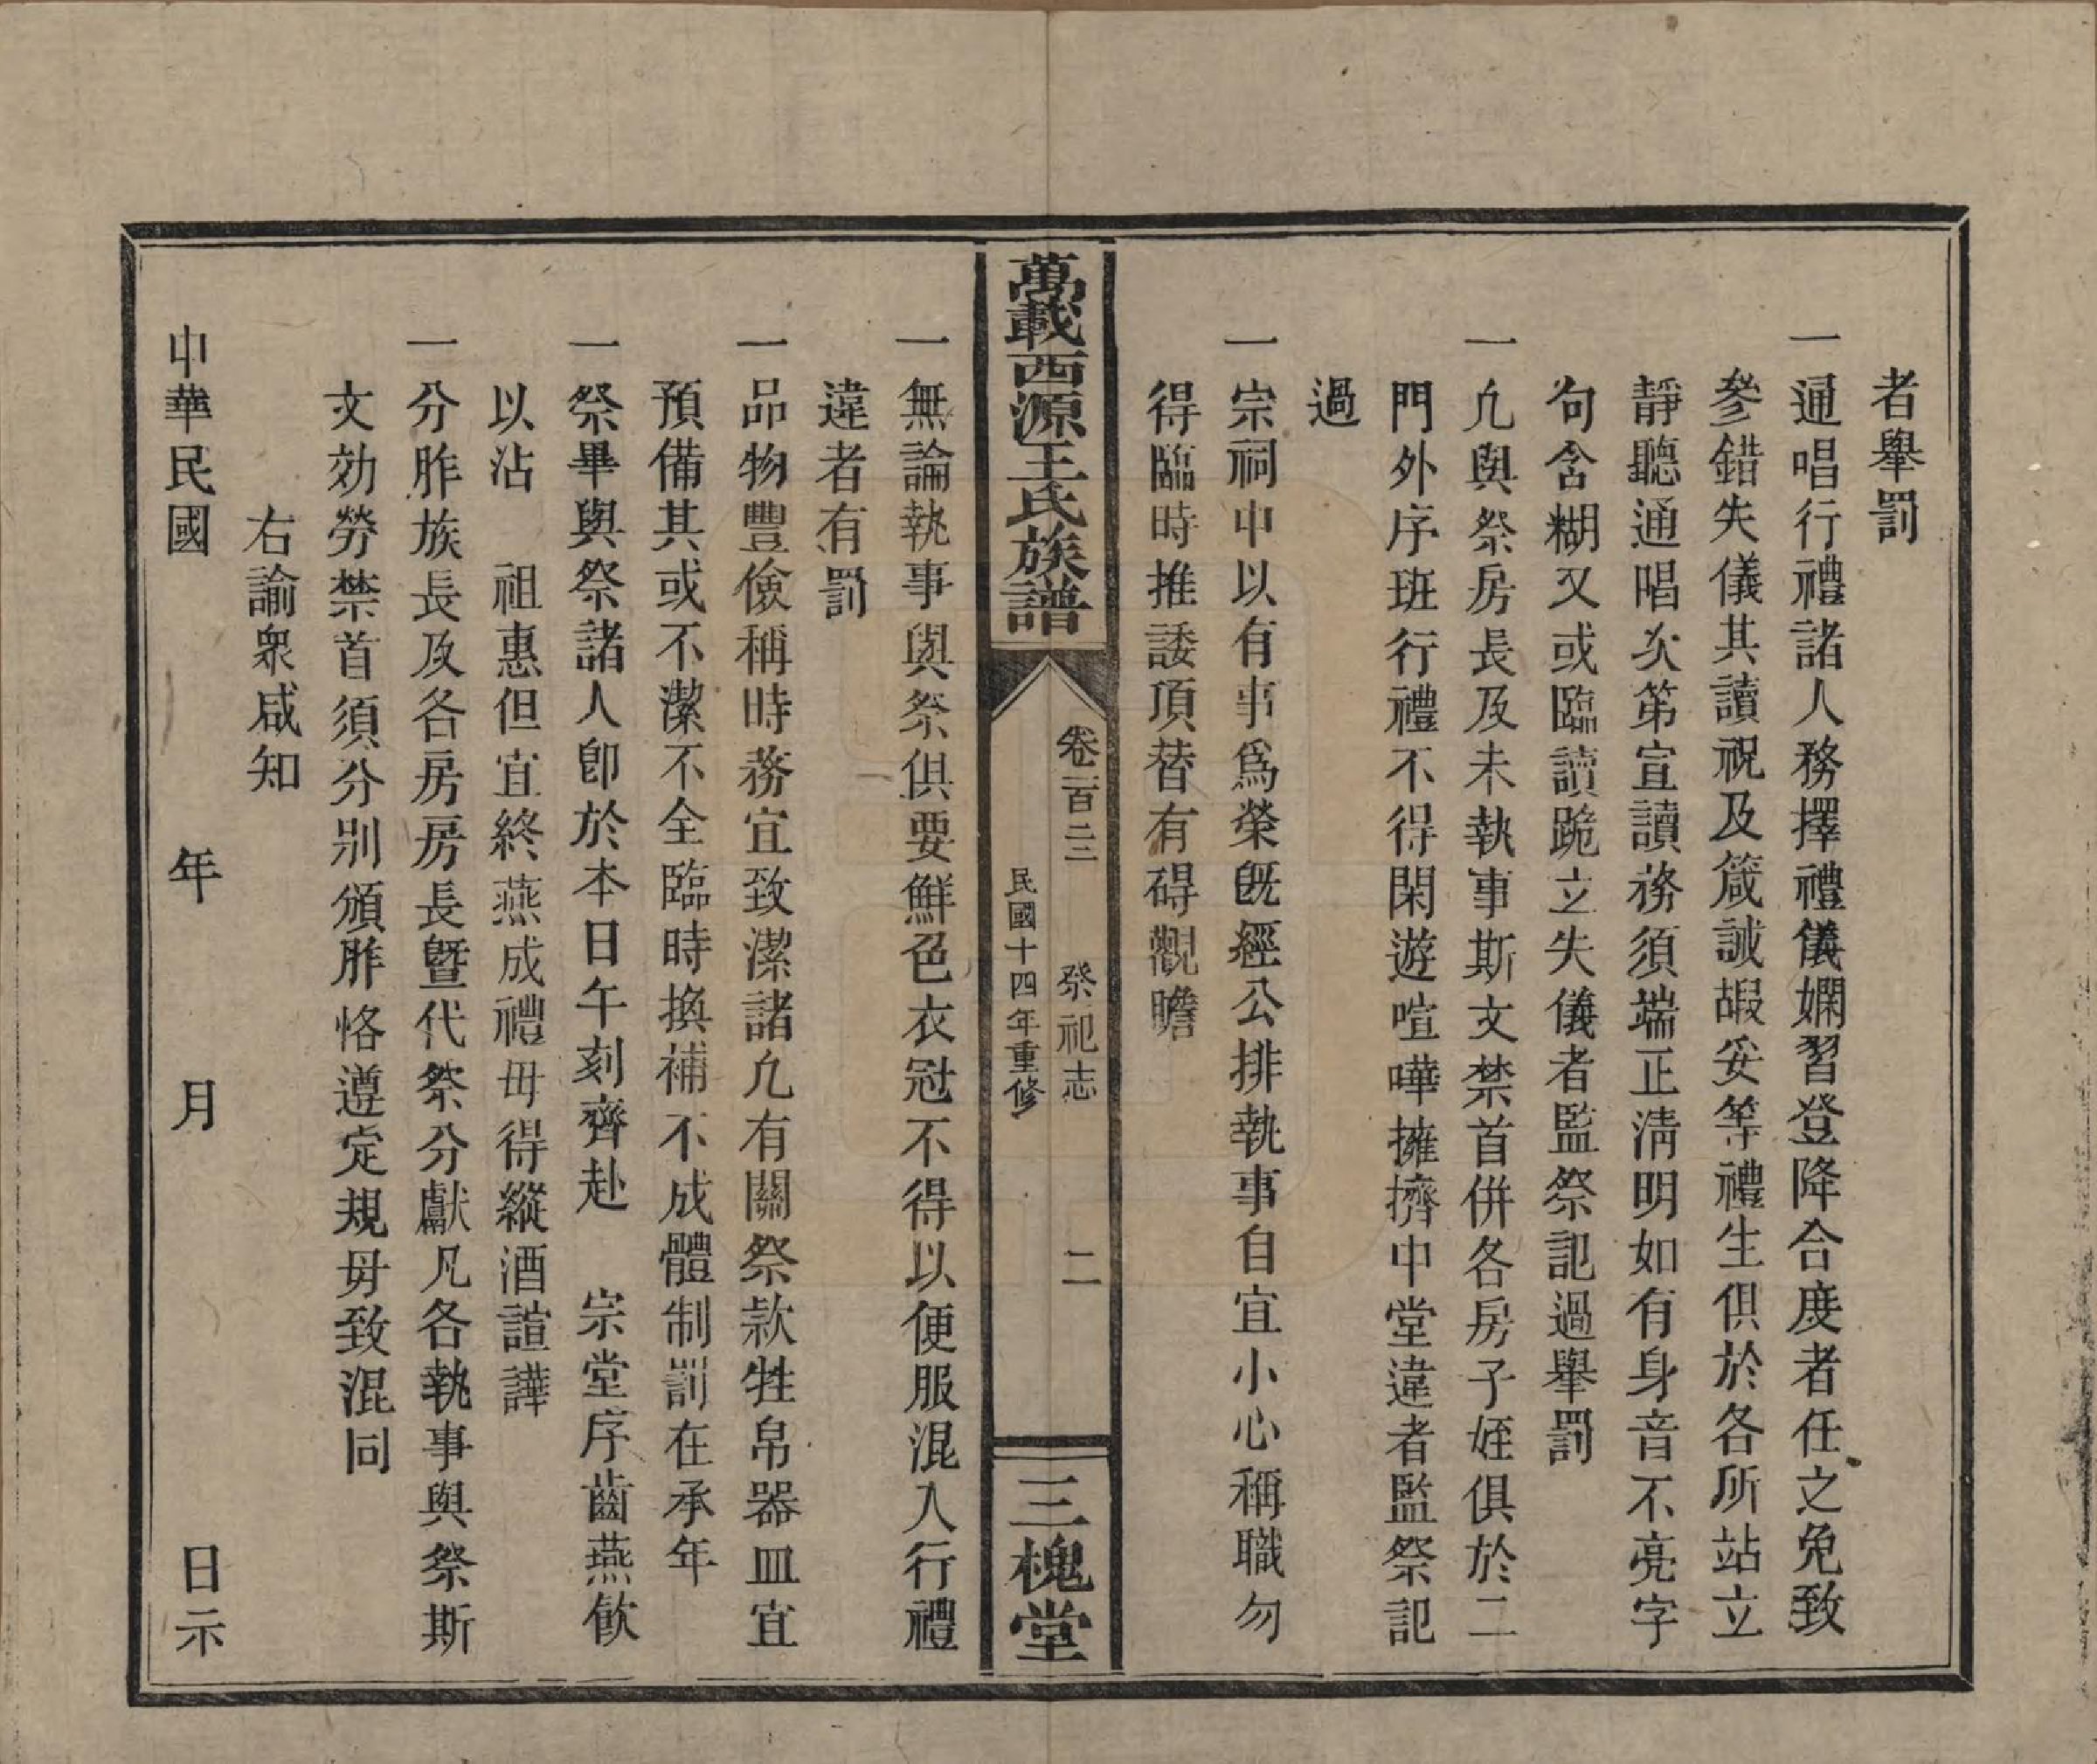 者舉罰
一通唱行禮諸人務擇禮儀嫻習登降合度者任之免致
參錯失儀其讀祝及箴誡嘏妥等禮生俱於各所站立
靜聽通唱次第宣讀務須端正清明如有身音不亮字
句含糊又或臨讀跪立失儀者監祭記過舉罰
一凢與祭房長及未執事斯文禁首併各房子姪俱於二
門外序班行禮不得閑遊喧嘩擁擠中堂違者監祭記
過
一宗祠中以有事爲榮旣經公排執事自宜小心稱職勿
得臨時推諉頂替有碍觀瞻
萬載西源王氏族譜
卷一百二三
祭祀志
二
民國十四年重修
三槐堂
一無論執事與祭俱要鮮色衣冠不得以便服混入行禮
違者有罰
一品物豐儉稱時務宜致潔諸凢有關祭款牲帛器皿宜
預備其或不潔不全臨時換補不成體制罰在承年
一祭畢與祭諸人卽於本日午刻齊赴 宗堂序齒燕飲
以沾 祖惠但宜終燕成禮毋得縱酒諠譁
一分胙族長及各房房長暨代祭分獻凡各執事與祭斯
文効勞禁首須分別頒胙恪遵定規毋致混同
右諭衆咸知
中華民國 年 月 日示